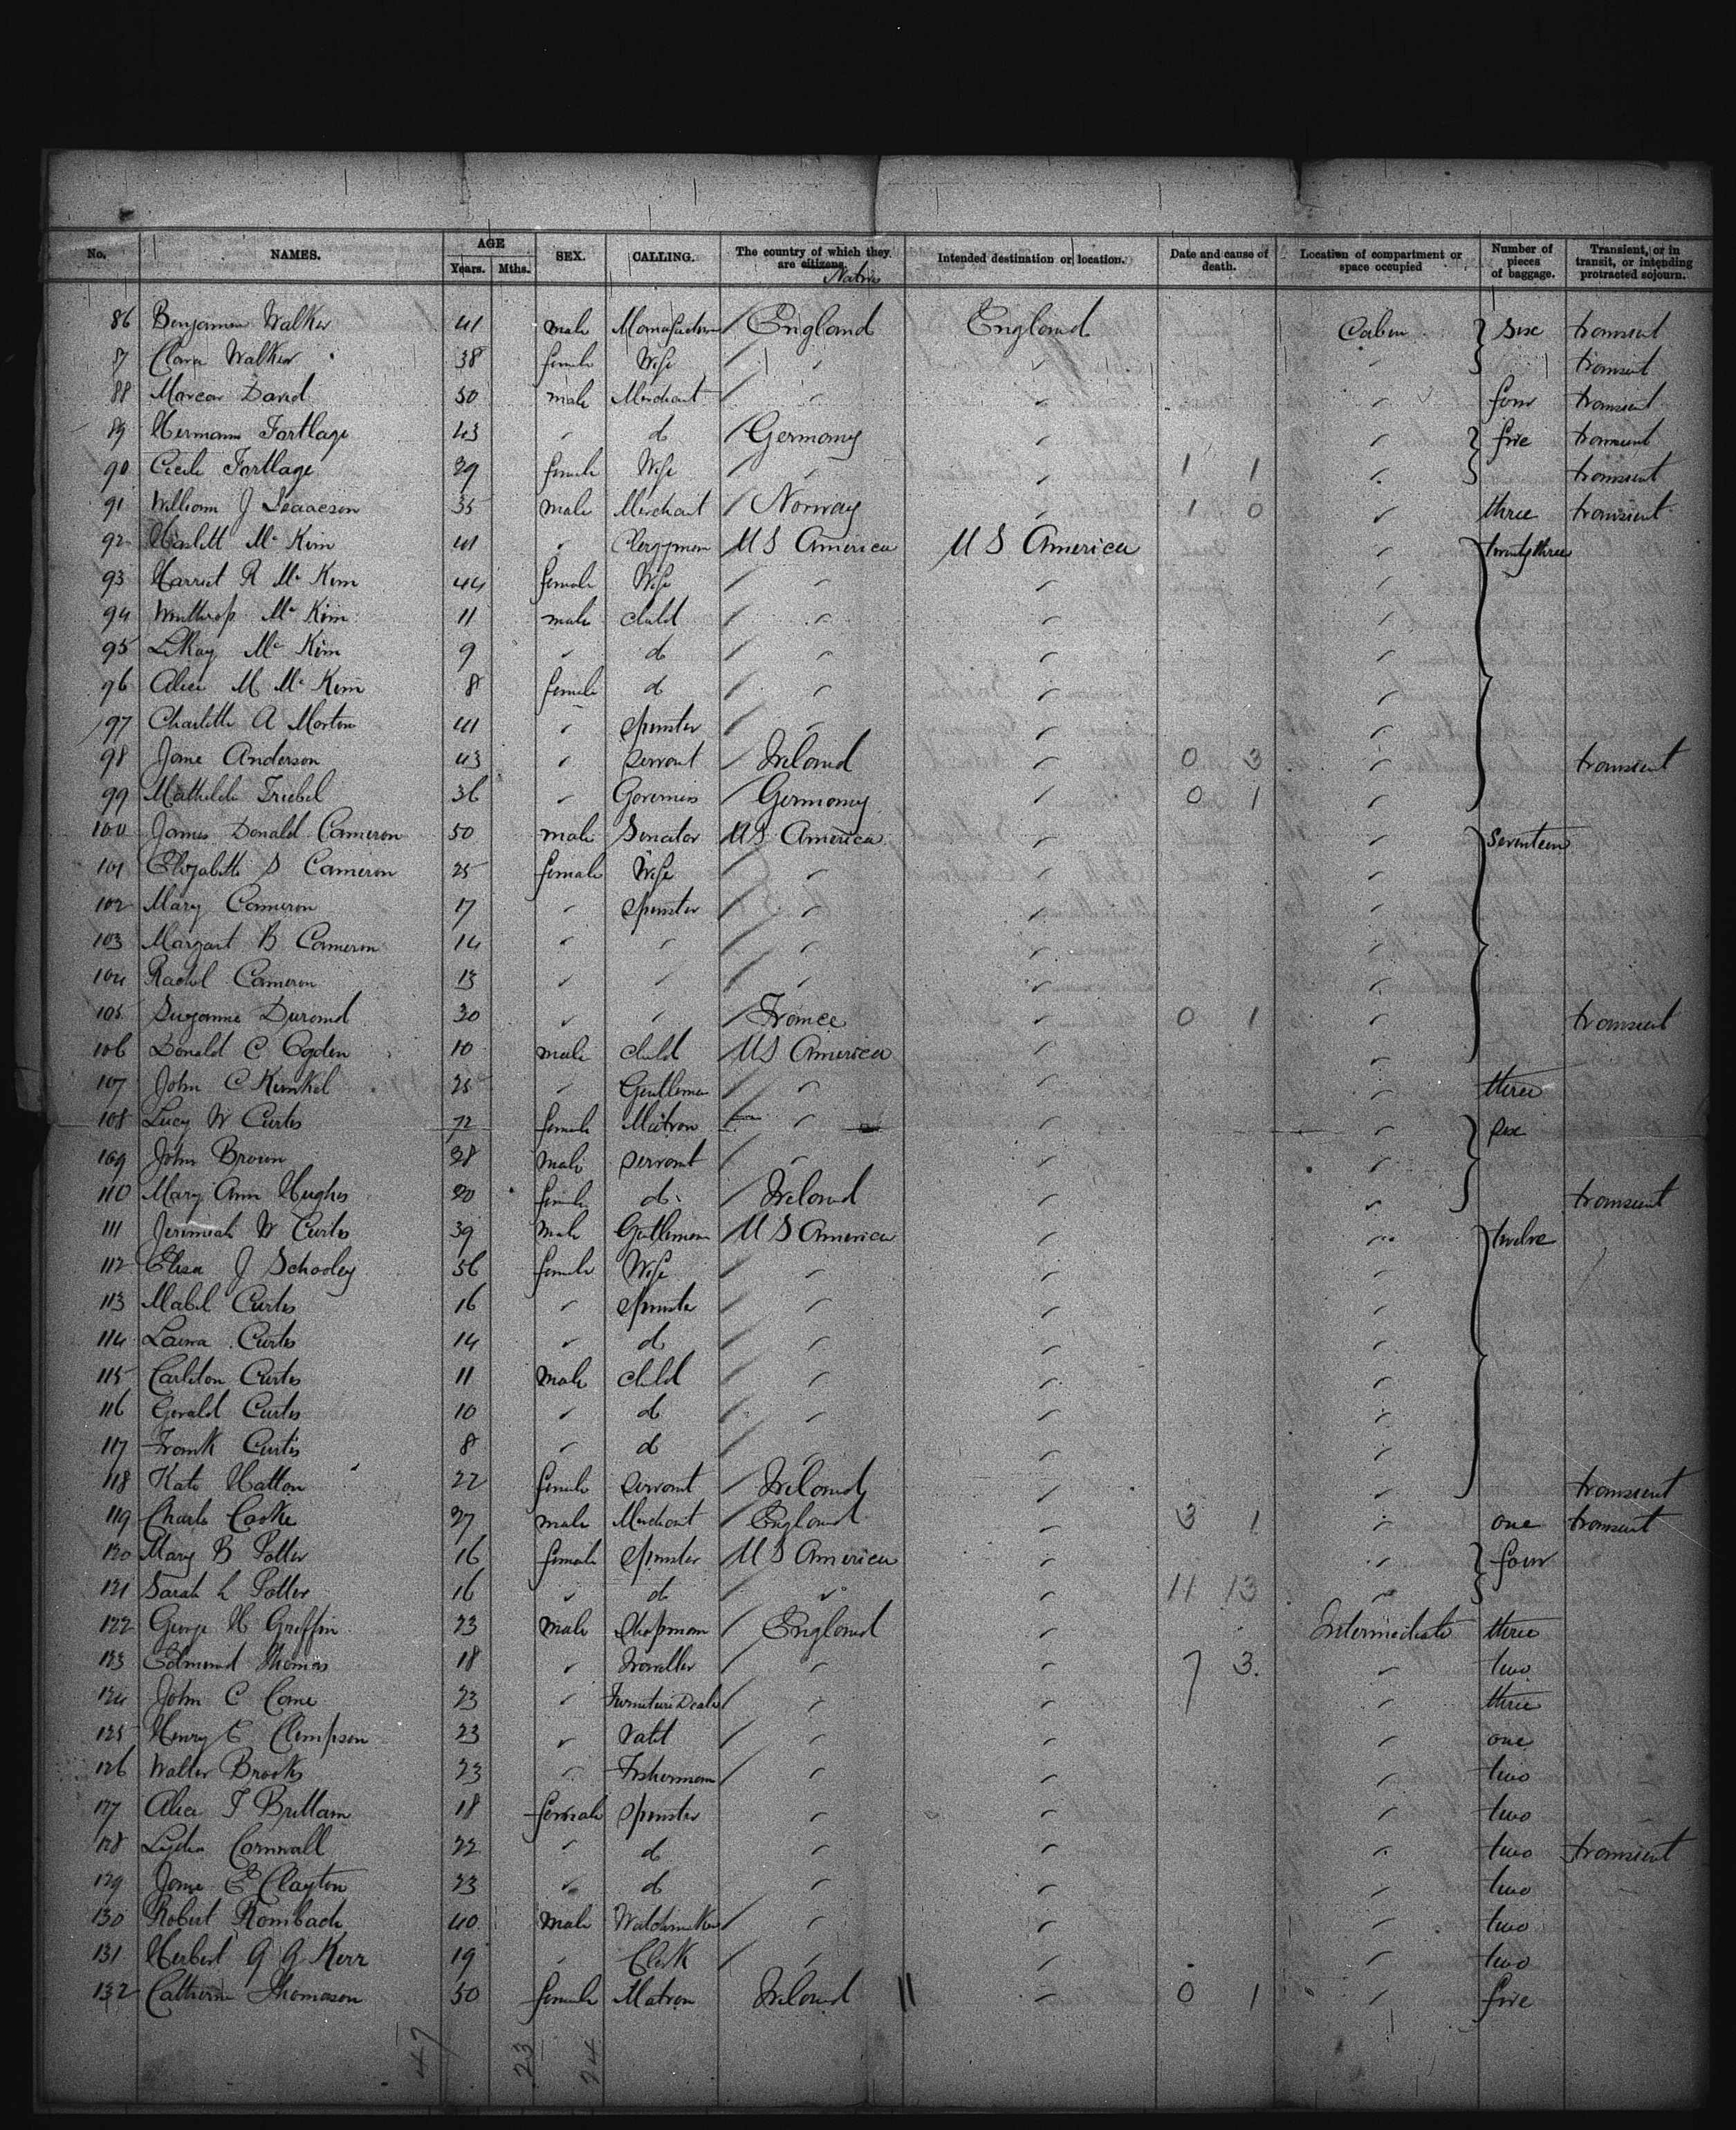 No. NAMES. AGE Years. Mths. SEX. CALLING. The country of which they are citizens. Native Intended destination or location. Date and cause of death. Location of compartment or space occupied Number of pieces of baggage. Transient, or in transit, or intending protracted sojourn.
86 Benjamin Walker 41 male England England Cabin six transient
87 Clara Walker 38 female Wife " " " transient
88 Marcar David 50 male Merchant " " " four transient
89 Hermann Fortlage 43 " do Germany " " five transient
90 Cecile Fortlage 29 female Wife " " 1 1 " transient
91 William J Isaacson 35 male Merchant Norway " 1 0 " three transient
92 Haslett Mc Kim 41 " Clergyman U S America U S America " twenty three
93 Harriet R Mc Kim 44 female Wife " " "
94 Winthrop Mc Kim 11 male child " " "
95 LRay Mc Kim 9 " do " " "
96 Alice M Mc Kim 8 female do " " "
97 Charlotte A Morton 41 " Spinster " " "
98 Jane Anderson 43 " servant Ireland " 0 3 " transient
99 Mathilde Triebel 36 " Governess Germany " 0 1 "
100 James Donald Cameron 50 male Senator U S America " " seventeen
101 Elizabeth S Cameron 25 female Wife " " "
102 Mary Cameron 17 " Spinster " " "
103 Margart B Cameron 14 " " " " "
104 Rachel Cameron 13 " " " " "
105 Suzanne Durand 30 " " France " 0 1 " transient
106 Donald C Ogden 10 male child U S America " "
107 John C Kunkel 25 " Gentleman " " " three
108 Lucy W Curtis 72 female Matron " " six
109 John Brown 38 male servant " " "
110 Mary Ann Hughes 20 female do Ireland " " transient
111 Jeremiah W Curtis 39 male Gentleman U S America " " twelve
112 Elisa J Schooley 56 female Wife " " "
113 Mabel Curtis 16 " Spinster " " "
114 Laura Curtis 14 " do " " "
115 Carleton Curtis 11 male child " " "
116 Gerald Curtis 10 " do " " "
117 Frank Curtis 8 " do " " "
118 Kate Hatton 22 female servant Ireland " " transient
119 Charles Cooke 27 male Merchant England " 3 1 " one transient
120 Mary B Potter 16 female Spinster U S America " " four
121 Sarah L Potter 16 " do " " 11 13 "
122 George H Griffin 23 male Shopman England " Intermediate three
123 Edmund Thomas 18 " Traveller " " 7 3 " two
124 John C Came 23 " Furniture Dealer " " " three
125 Henry E Clempson 23 " Valet " " " one
126 Walter Brooks 23 " Fisherman " " " two
127 Alice T Brittain 18 female Spinster " " " two
128 Lydia Cornwall 22 " do " " " two transient
129 Jane E Clayton 23 " do " " " two
130 Robert Rombach 40 male Watchmaker " " " two
131 Herbert G G Kerr 19 " Clerk " " " two
132 Catherine Thomason 50 female Matron Ireland " 0 1 " five
47 23 24